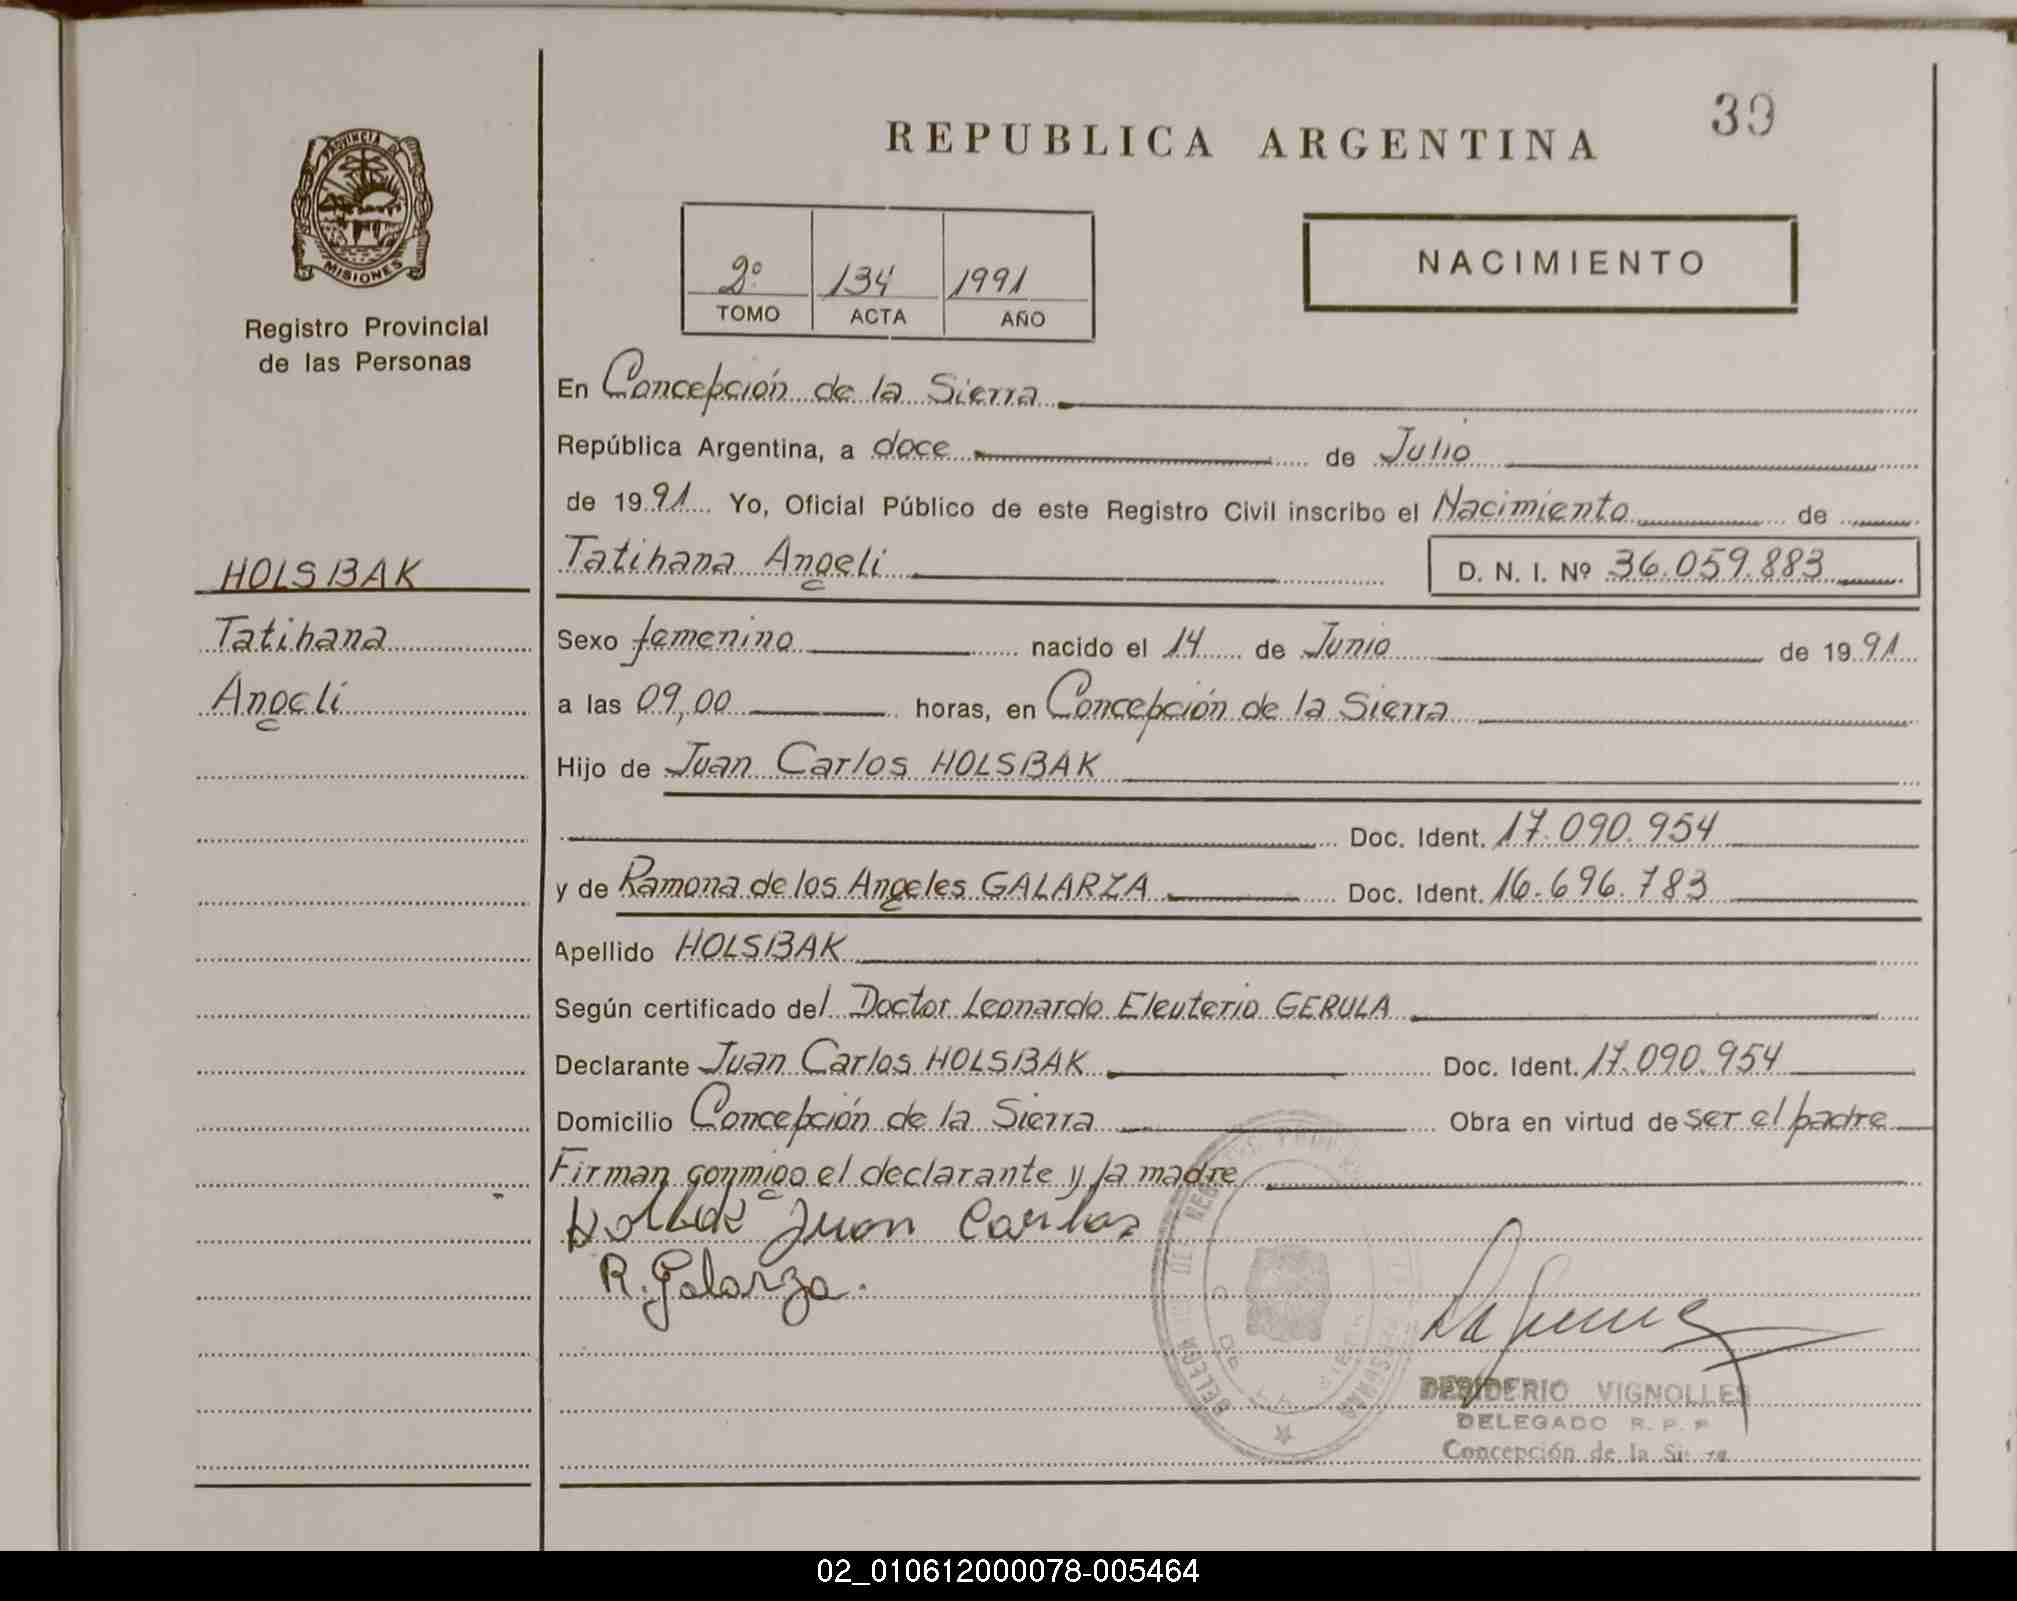 39
REPUBLICA ARGENTINA
PROVINCIA DE
MISIONES
Registro Provincial
de las Personas
NACIMIENTO
2º 134 1991
TOMO ACTA AÑO
En Concepción de la Sierra
República Argentina, a doce de Julio
de 1991 Yo, Oficial Público de este Registro Civil inscribo el Nacimiento de
HOLSBAK
Tatihana Angeli D. N. I. Nº 36.059.883
Tatihana
Sexo femenino nacido el 14 de Junio de 1991
Angeli
a las 09,00 horas, en Concepción de la Sierra
Hijo de Juan Carlos HOLSBAK
Doc. Ident. 17.090.954
y de Ramona de los Angeles GALARZA Doc. Ident. 16.696.783
Apellido HOLSBAK
Según certificado del Doctor Leonardo Eleuterio GERULA
Declarante Juan Carlos HOLSBAK Doc. Ident. 17.090.954
Domicilio Concepción de la Sierra Obra en virtud de ser el padre
Firman conmigo el declarante y la madre
Juan Carlos
R. Galarza.
DESIDERIO VIGNOLLES
DELEGADO R. P. P
Concepción de la
02_010612000078-005464